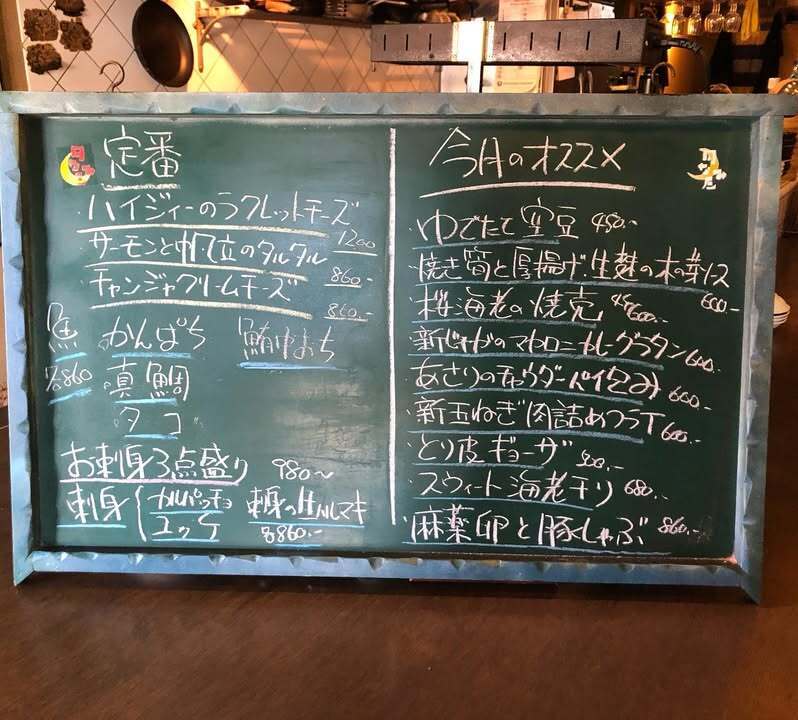 定番
・ハイジィーのラクレットチーズ
1200
・サーモンと帆立のタルタル
860
・チャンジャクリームチーズ
860
魚 かんぱち 鮪中おち
各860 真鯛
タコ
お刺身3点盛り 980〜
刺身 カルパッチョ 刺身の生ハルマキ
ユッケ 各860.-
今月のオススメ
・ゆでたて空豆 450.-
・焼き筍と厚揚げ.生麩の木の芽ソース
600.-
・桜海老の焼売 600.-
・新じゃがのマカロニカレーグラタン 600.-
・あさりのチャウダーパイ包み 600.-
・新玉ねぎ肉詰めフライ 600.-
・とり皮ギョーザ 500.-
・スウィート海老チリ 680.-
・麻薬卵と豚しゃぶ 860.-